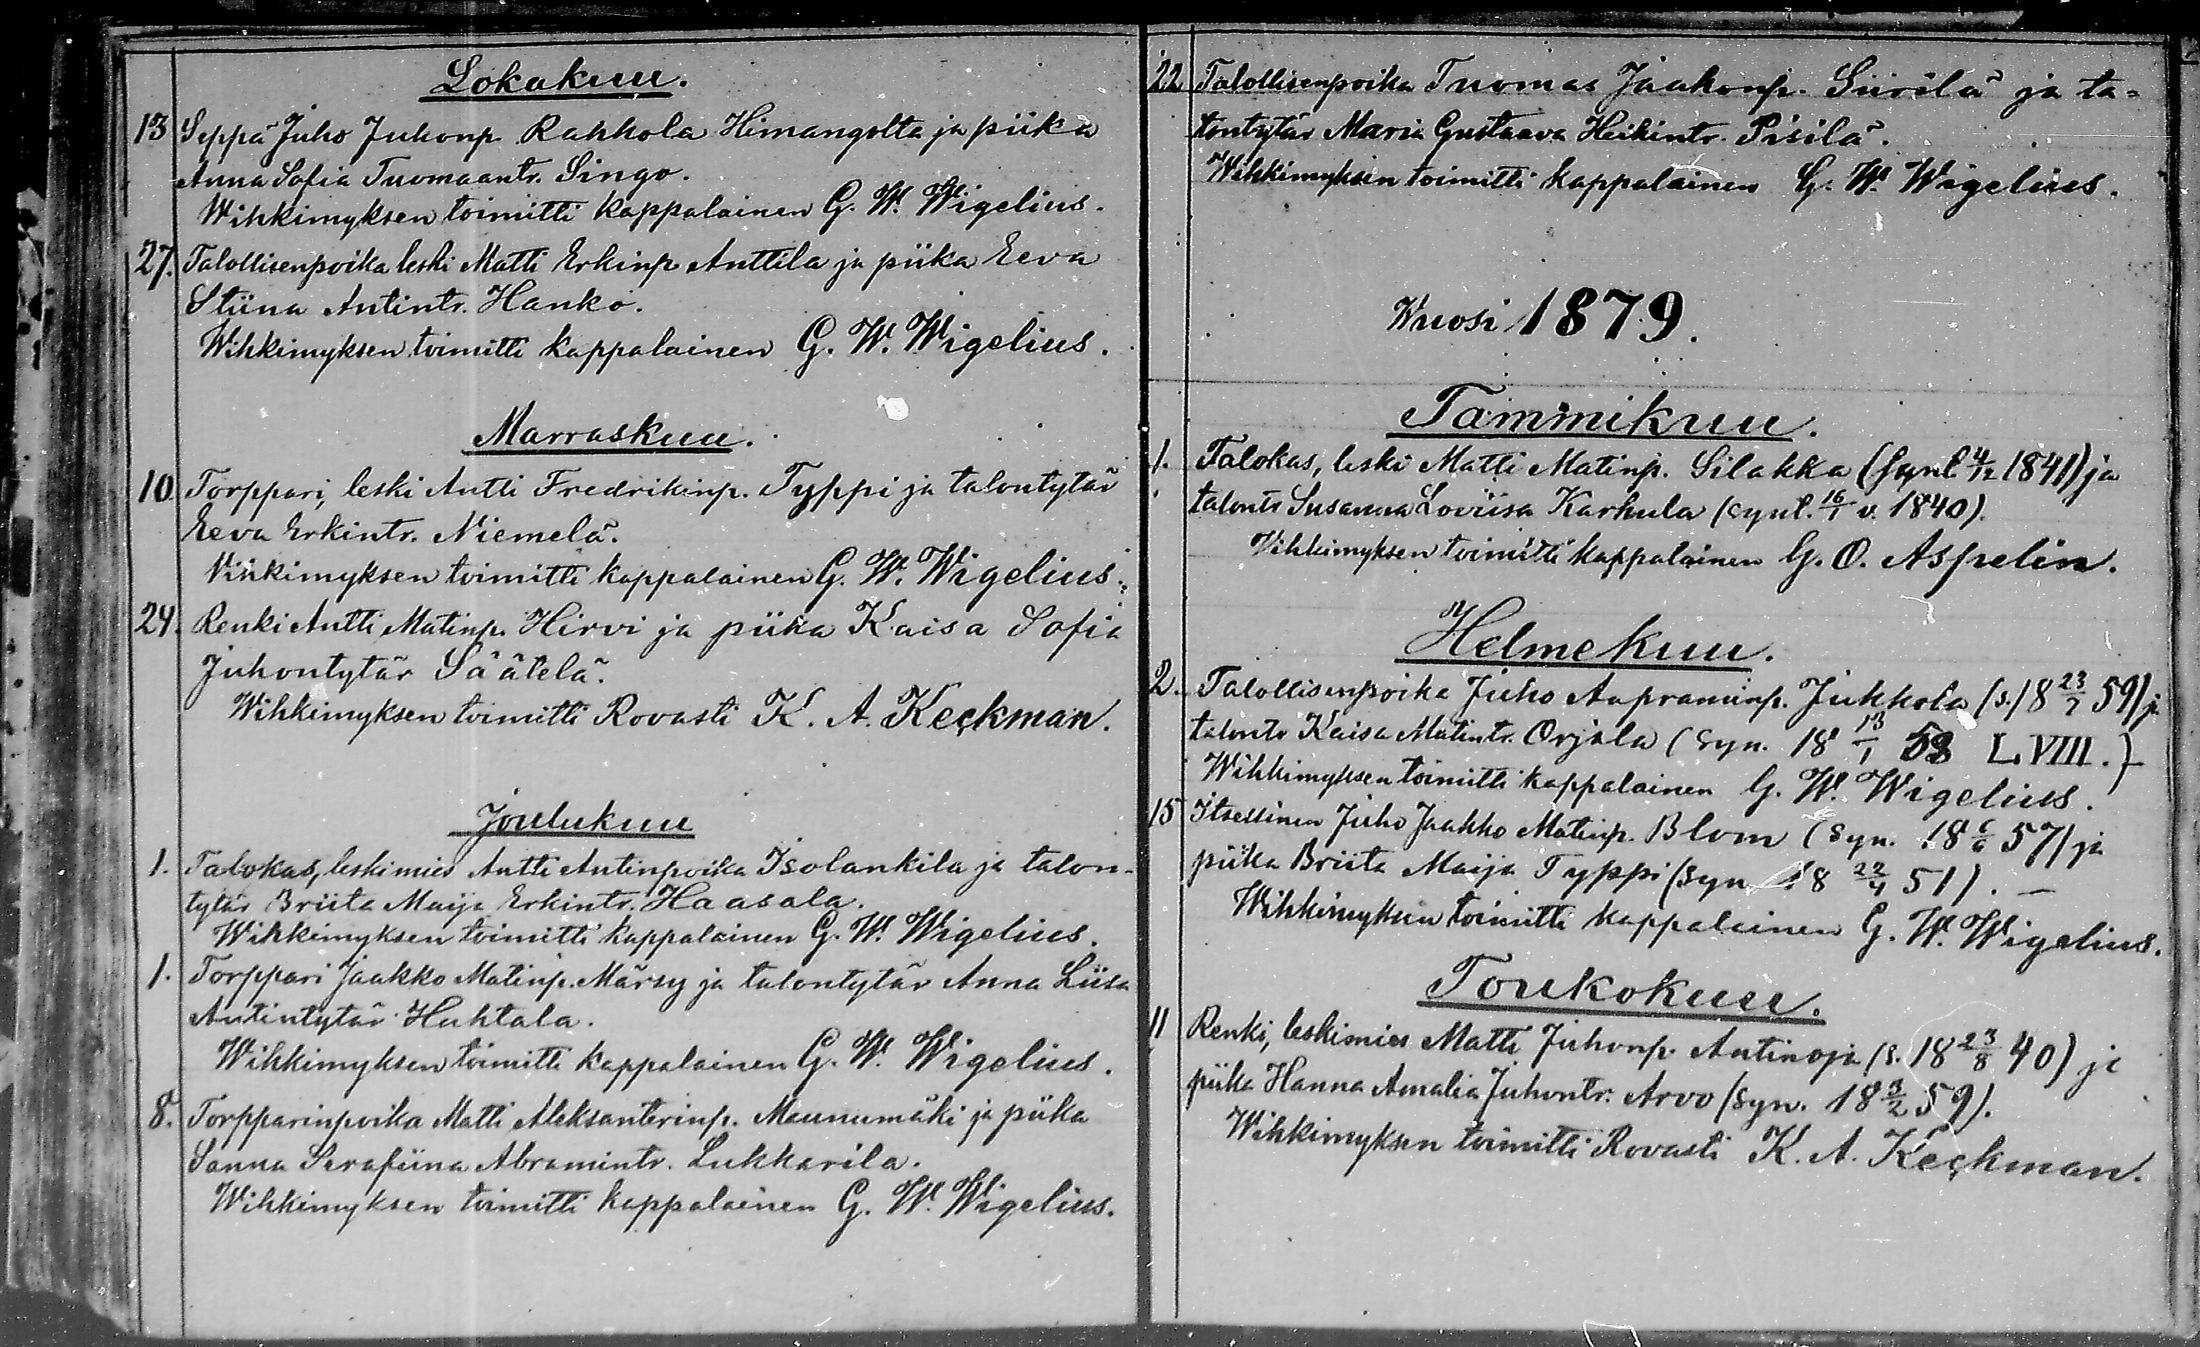 Lokakuu.
13 Seppä Juho Juhonp. Rahkola Himangolta ja piika
Anna Sofia Tuomaantr. Singo.
Wihkimyksen toimitti kappalainen G. W. Wigelius.
27. Talollisenpoika leski Matti Erkinp Anttila ja piika Eeva
Stiina Antintr. Hanko.
Wihkimyksen toimitti kappalainen G. W. Wigelius.
Marraskuu.
10 Torppari, leski Antti Fredrikinp. Typpi ja talontytär
Eeva Erkintr. Niemelä.
Wihkimyksen toimitti kappalainen G. W. Wigelius.
24. Renki Antti Matinp. Hirvi ja piika Kaisa Sofia
Juhontytär Säätelä.
Wihkimyksen toimitti Rovasti K. A. Keckman.
Joulukuu
1. Talokas, leskimies Antti Antinpoika Isolankila ja talon-
tytär Briita Maija Erkintr. Haasala.
Wihkimyksen toimitti kappalainen G. W. Wigelius.
1. Torppari Jaakko Matinp. Märsy ja talontytär Anna Liisa
Antintytär Huhtala.
Wihkimyksen toimitti kappalainen G. W. Wigelius.
8. Torpparinpoika Matti Aleksanterinp. Maunumäki ja piika
Sanna Serafiina Abramintr. Lukkarila.
Wihkimyksen toimitti kappalainen G. W. Wigelius.
22 Talollisenpoika Tuomas Jaakonp. Siirilä ja ta-
lontytär Maria Gustaava Heikintr. Pisilä.
Wihkimyksen toimitti kappalainen G. W. Wigelius.
Wuosi 1879.
Tammikuu.
1. Talokas, leski Matti Matinp. Silakka (synt. 4/12 1841) ja
talontr Susanna Loviisa Karhula (synt. 16/1 v. 1840).
Wihkimyksen toimitti kappalainen G. O. Aspelin.
Helmekuu.
2. Talollisenpoika Juho Aapraminp. Jukkola (s. 18 23/7 59) ja
talontr Kaisa Matintr. Orjala (syn. 18 13/1 58 LVIII.)
Wihkimyksen toimitti kappalainen G. W. Wigelius.
15 Itsellinen Juho Jaakko Matinp. Blom (syn. 18 6/6 57) ja
piika Briita Maija Typpi (syn 18 22/4 51). —
Wihkimyksen toimitti kappalainen G. W. Wigelius.
Toukokuu.
11 Renki, leskimies Matti Juhonp. Antinoja (s. 18 23/8 40) ja
piika Hanna Amalia Juhontr. Arvo (syn. 18 3/2 59).
Wihkimyksen toimitti Rovasti K. A. Keckman.